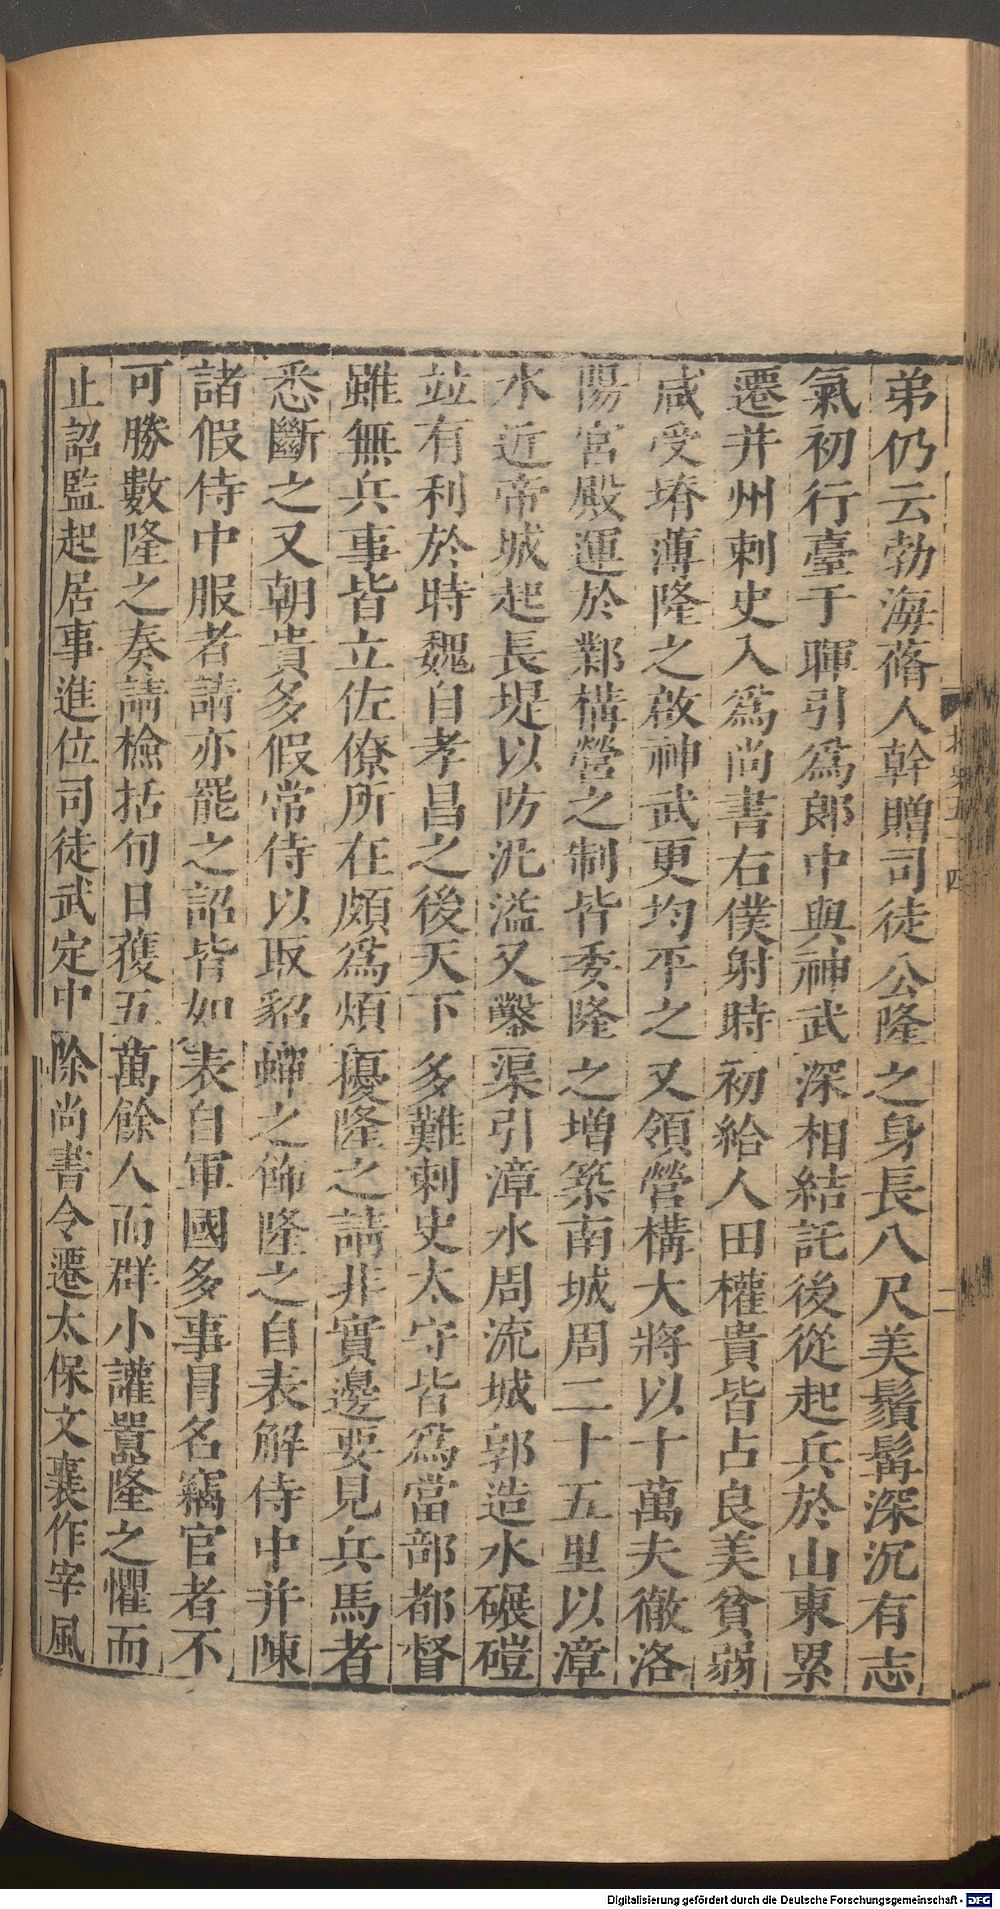 弟仍云勃海蓨人幹贈司徒公隆之身長八尺美鬚髯深沉有志
氣初行臺于暉引爲郎中與神武深相結託後從起兵於山東累
遷并州刺史入爲尚書右僕射時初給人田權貴皆占良美貧弱
咸受塉薄隆之啟神武更均平之又領營構大將以十萬夫徹洛
陽宮殿運於鄴構營之制皆委隆之增築南城周二十五里以漳
水近帝城起長堤以防汎溢又鑿渠引漳水周流城郭造水碾磑
竝有利於時魏自孝昌之後天下多難刺史太守皆爲當部都督
雖無兵事皆立佐僚所在頗爲煩擾隆之請非實邊要見兵馬者
悉斷之又朝貴多假常侍以取貂蟬之飾隆之自表解侍中并陳
諸假侍中服者請亦罷之詔皆如表自軍國多事冐名竊官者不
可勝數隆之奏請檢括旬日獲五萬餘人而群小讙嚣隆之懼而
止詔監起居事進位司徒武定中除尚書令遷太保文襄作宰風
四
二
Digitalisierung gefördert durch die Deutsche Forschungsgemeinschaft - DFG